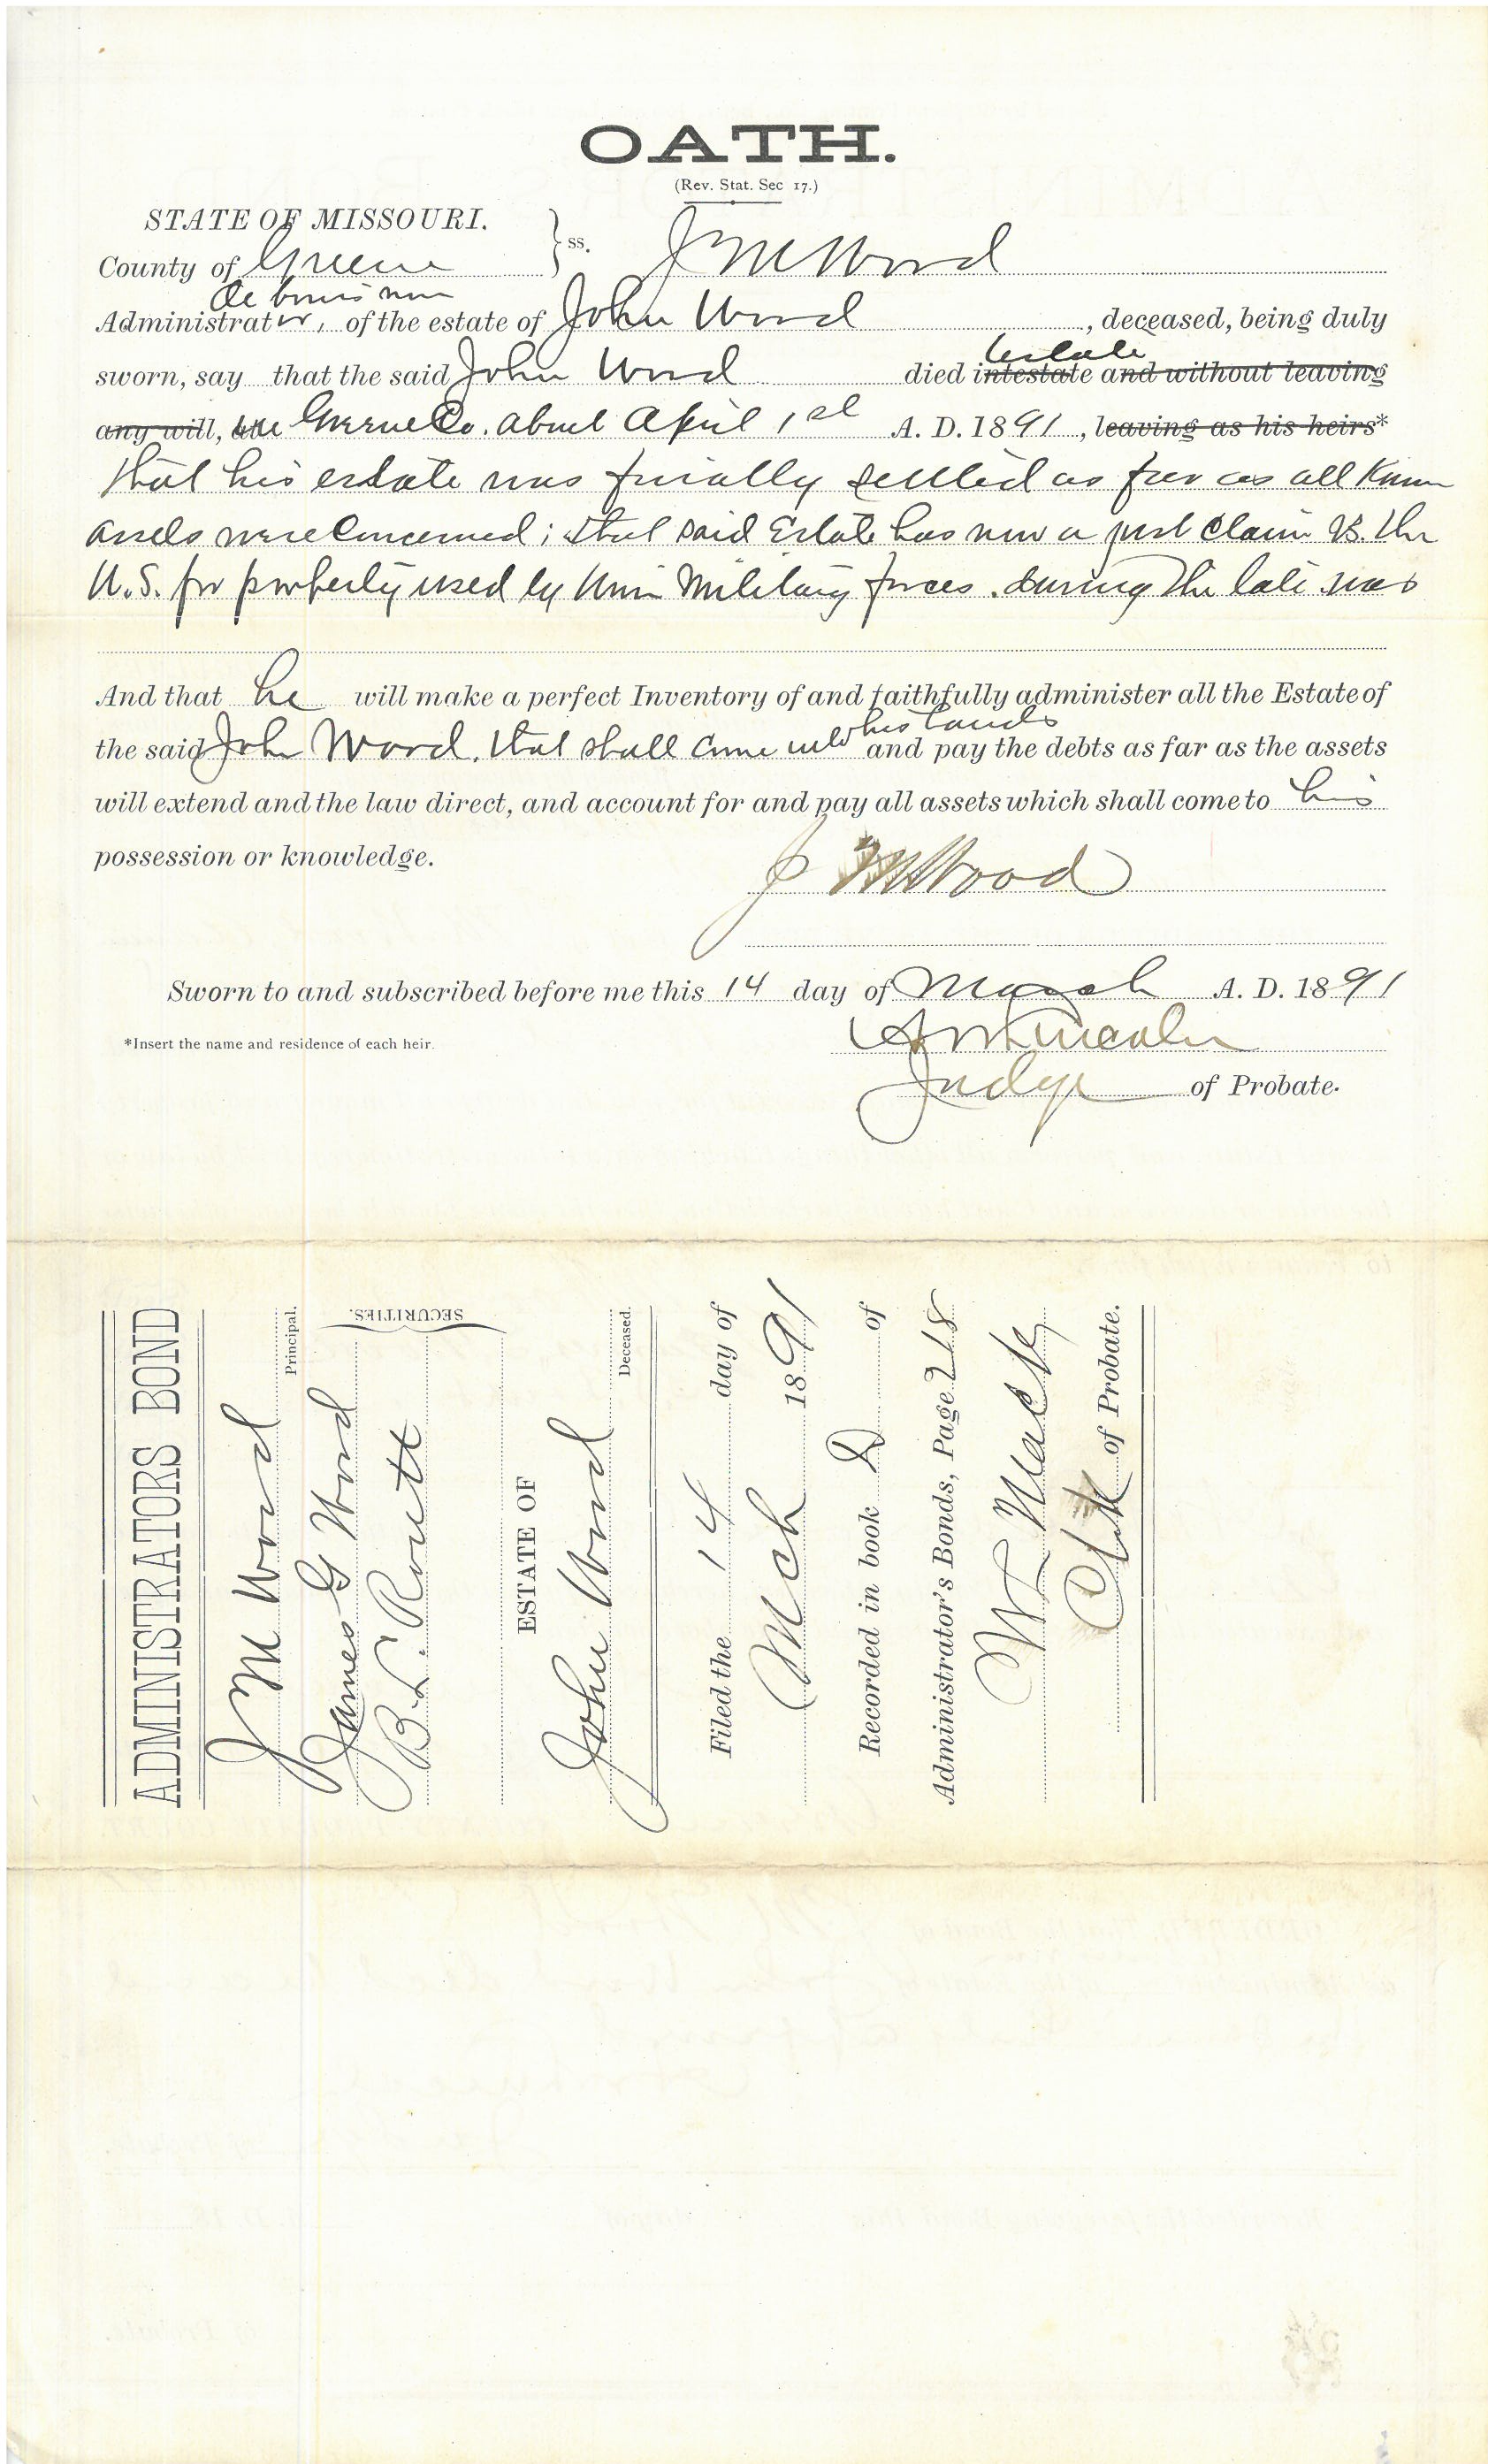 OATH.
(Rev. Stat. Sec 17.)
STATE OF MISSOURI.
County of Greene } ss. J M Wood
de bonis non
Administrator, of the estate of John Wood, deceased, being duly
testate
sworn, say that the said John Wood died intestate and without leaving
any will, Greene Co. about April 1st A. D. 1891, leaving as his heirs*
that his estate was finally settled as far as all known
assets were concerned; that said Estate has now a just claim vs. the
U.S. for property used by Union Military forces during the late war
And that he will make a perfect Inventory of and faithfully administer all the Estate of
his hands
the said John Wood, that shall come into and pay the debts as far as the assets
will extend and the law direct, and account for and pay all assets which shall come to his
possession or knowledge.
J M Wood
Sworn to and subscribed before me this 14 day of March A. D. 1891
*Insert the name and residence of each heir.
Lincoln
Judge of Probate.
ADMINISTRATORS BOND
J M Wood
Principal.
James G Wood
B. L. Routt
SECURITIES.
ESTATE OF
John Wood
Deceased.
Filed the 14 day of
Mch 1891
Recorded in book D of
Administrator's Bonds, Page 218
Clk of Probate.